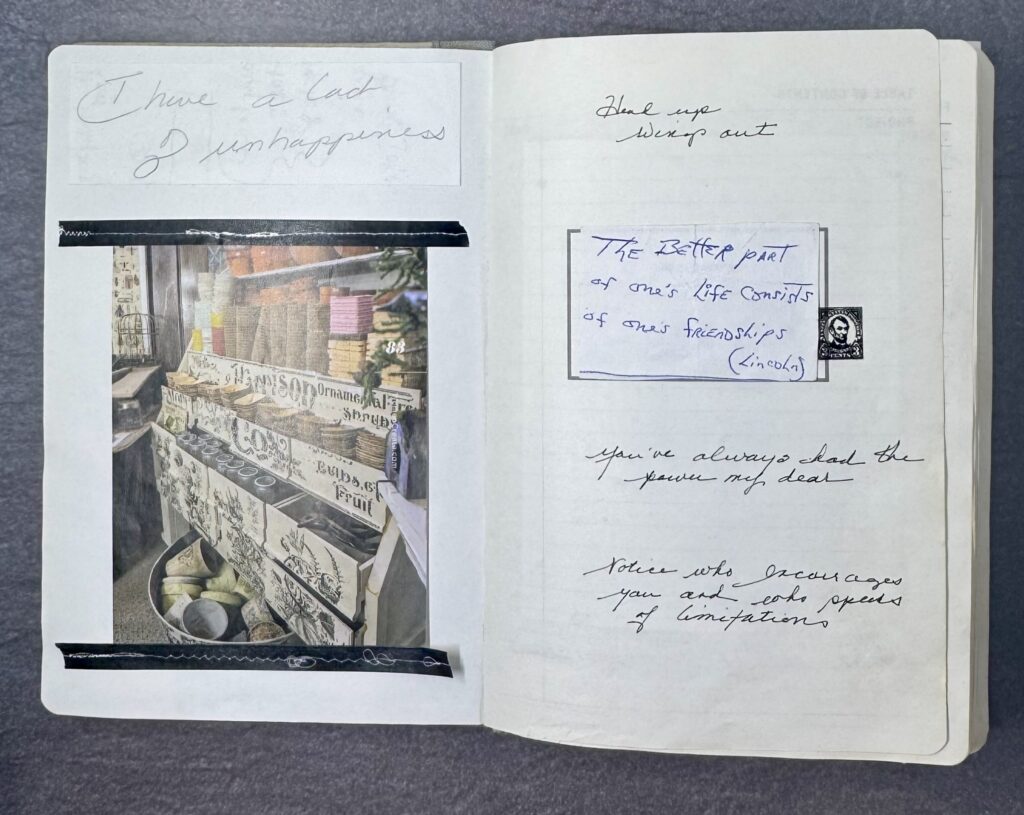 I have a lack
of unhappiness
83
Ornamental
Shrub
Co's
Fruit
Head up
wings out
The Better part
of one's Life consists
of one's friendships
(Lincoln)
CENTS
You've always had the
power my dear
Notice who encourages
you and who speaks
of limitations